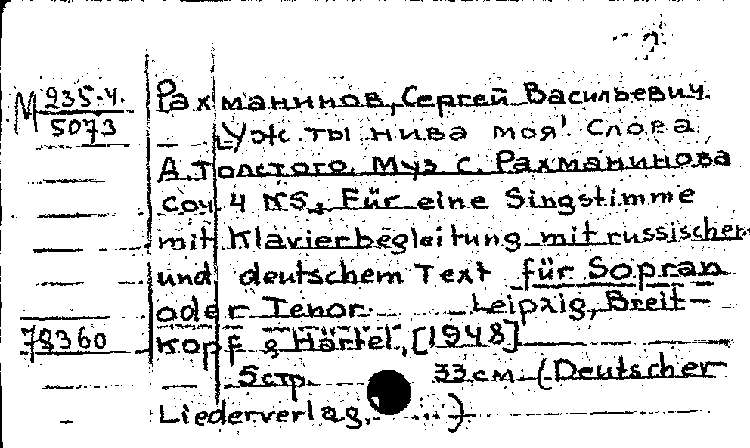 М 235-4.
5073
Рахманинов, Сергей Васильевич.
Уж ты нива моя! Слова
А. Толстого. Муз С. Рахманинова
Соч. 4 №5. Für eine Singstimme
mit Klavierbegleitung mit russischem
und deutschem Text für Sopran
oder Tenor. Leipzig, Breit-
78360
kopf & Härtel, [1948]
5 стр. 33 см (Deutscher
Liederverlag, ...)